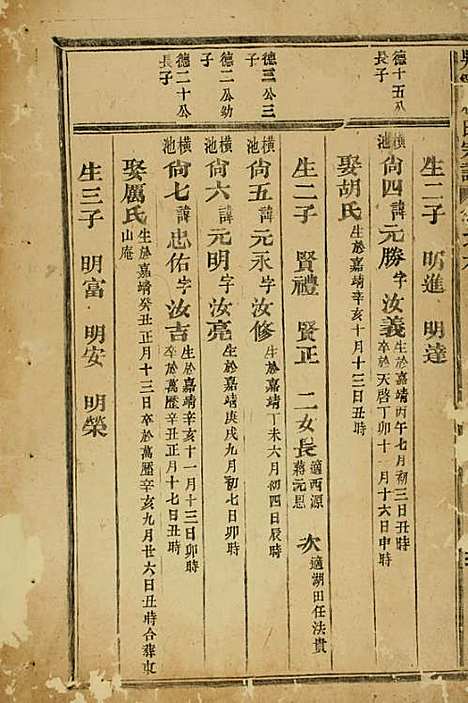 德十五公
長子
生二子 明進 明達
橫池 尙四 諱元勝 字汝義 生於嘉靖丙午七月初三日丑時
卒於天啓丁卯十一月十六日申時
娶胡氏 生於嘉靖辛亥十月十三日丑時
生二子 賢禮 賢正 二女長 適西源蔣元恩 次 適湖田任法貴
德三公三
子
橫池 尙五 諱元永 字汝修 生於嘉靖丁未六月初四日辰時
德二公幼
子
橫池 尙六 元明 字汝亮 生於嘉靖庚戌九月初七日卯時
德二十公
長子
橫池 尙七 諱忠佑 字汝吉 生於嘉靖辛亥十一月十三日卯時
卒於萬歷辛丑正月十七日丑時
娶厲氏 生於嘉靖癸丑正月十三日卒於萬歷辛亥九月廿六日丑時合葬東
山庵
生三子 明富 明安 明榮